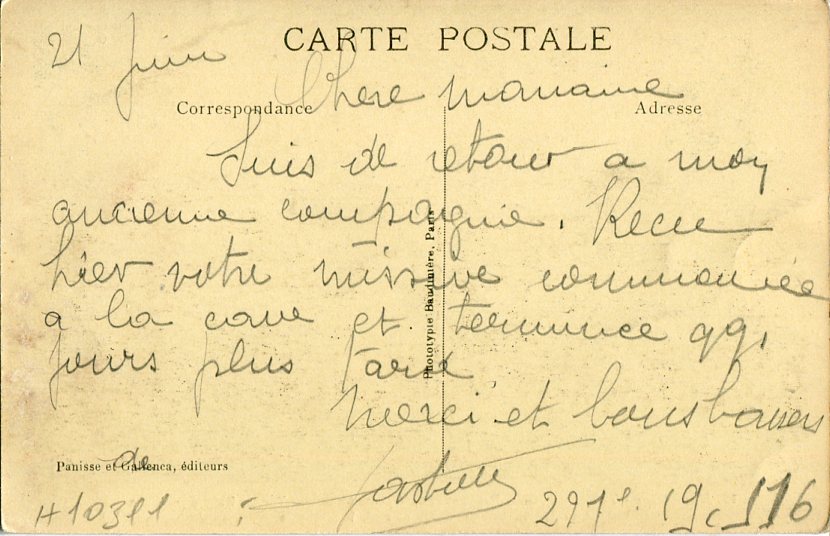 21 Juin
CARTE POSTALE
Correspondance
Adresse
Chere Mamaine
Suis de retour a mon
ancienne compagnie. Recu
hier votre missive commencée
a la cave et terminee qq.
jours plus tard
Merci et bons baisers
de
Panisse et Gallenca, éditeurs
Phototypie Baudinière, Paris
H 10311
291e 19c 116